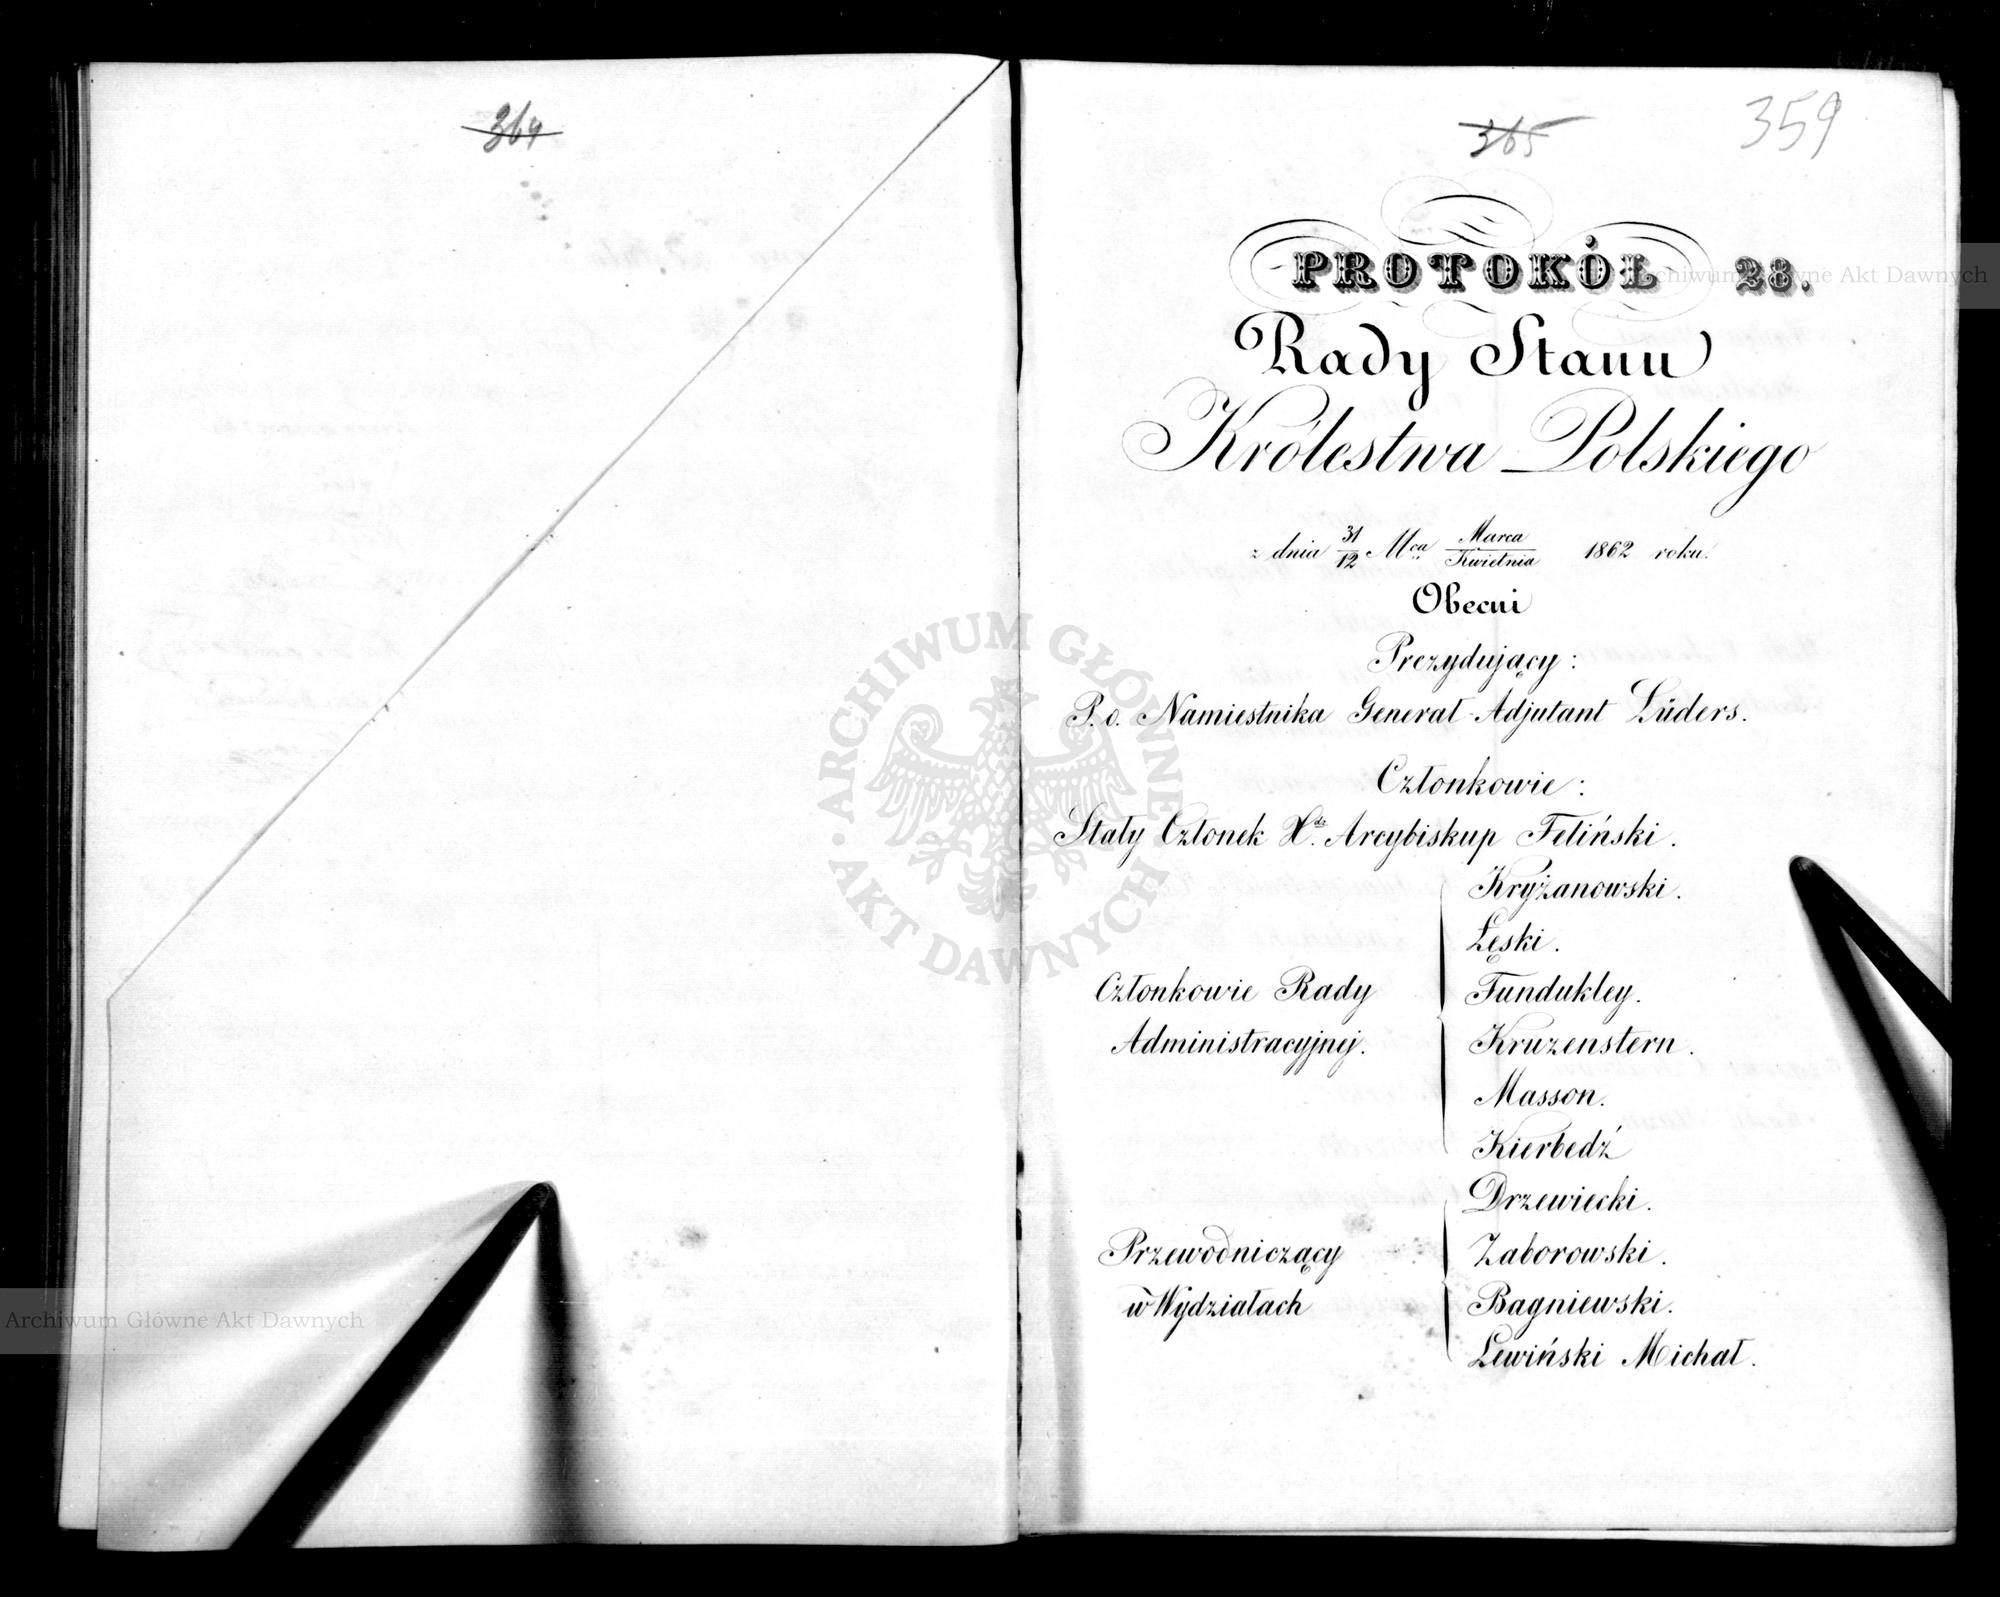 364
365
359
PROTOKÓŁ 28.
Rady Stanu
Królestwa Polskiego
z dnia 31/12 Mca Marca/Kwietnia 1862 roku.
Obecni
Prezydujący:
P. o. Namiestnika Generał-Adjutant Lüders.
Członkowie:
Stały Członek Xdz. Arcybiskup Feliński.
Kryżanowski.
Łęski.
Członkowie Rady
Fundukley.
Administracyjnej.
Kruzenstern.
Masson.
Kierbedź
Drzewiecki.
Przewodniczący
Zaborowski.
w Wydziałach
Bagniewski.
Lewiński Michał.
Archiwum Główne Akt Dawnych
ARCHIWUM GŁÓWNE AKT DAWNYCH
Archiwum Główne Akt Dawnych